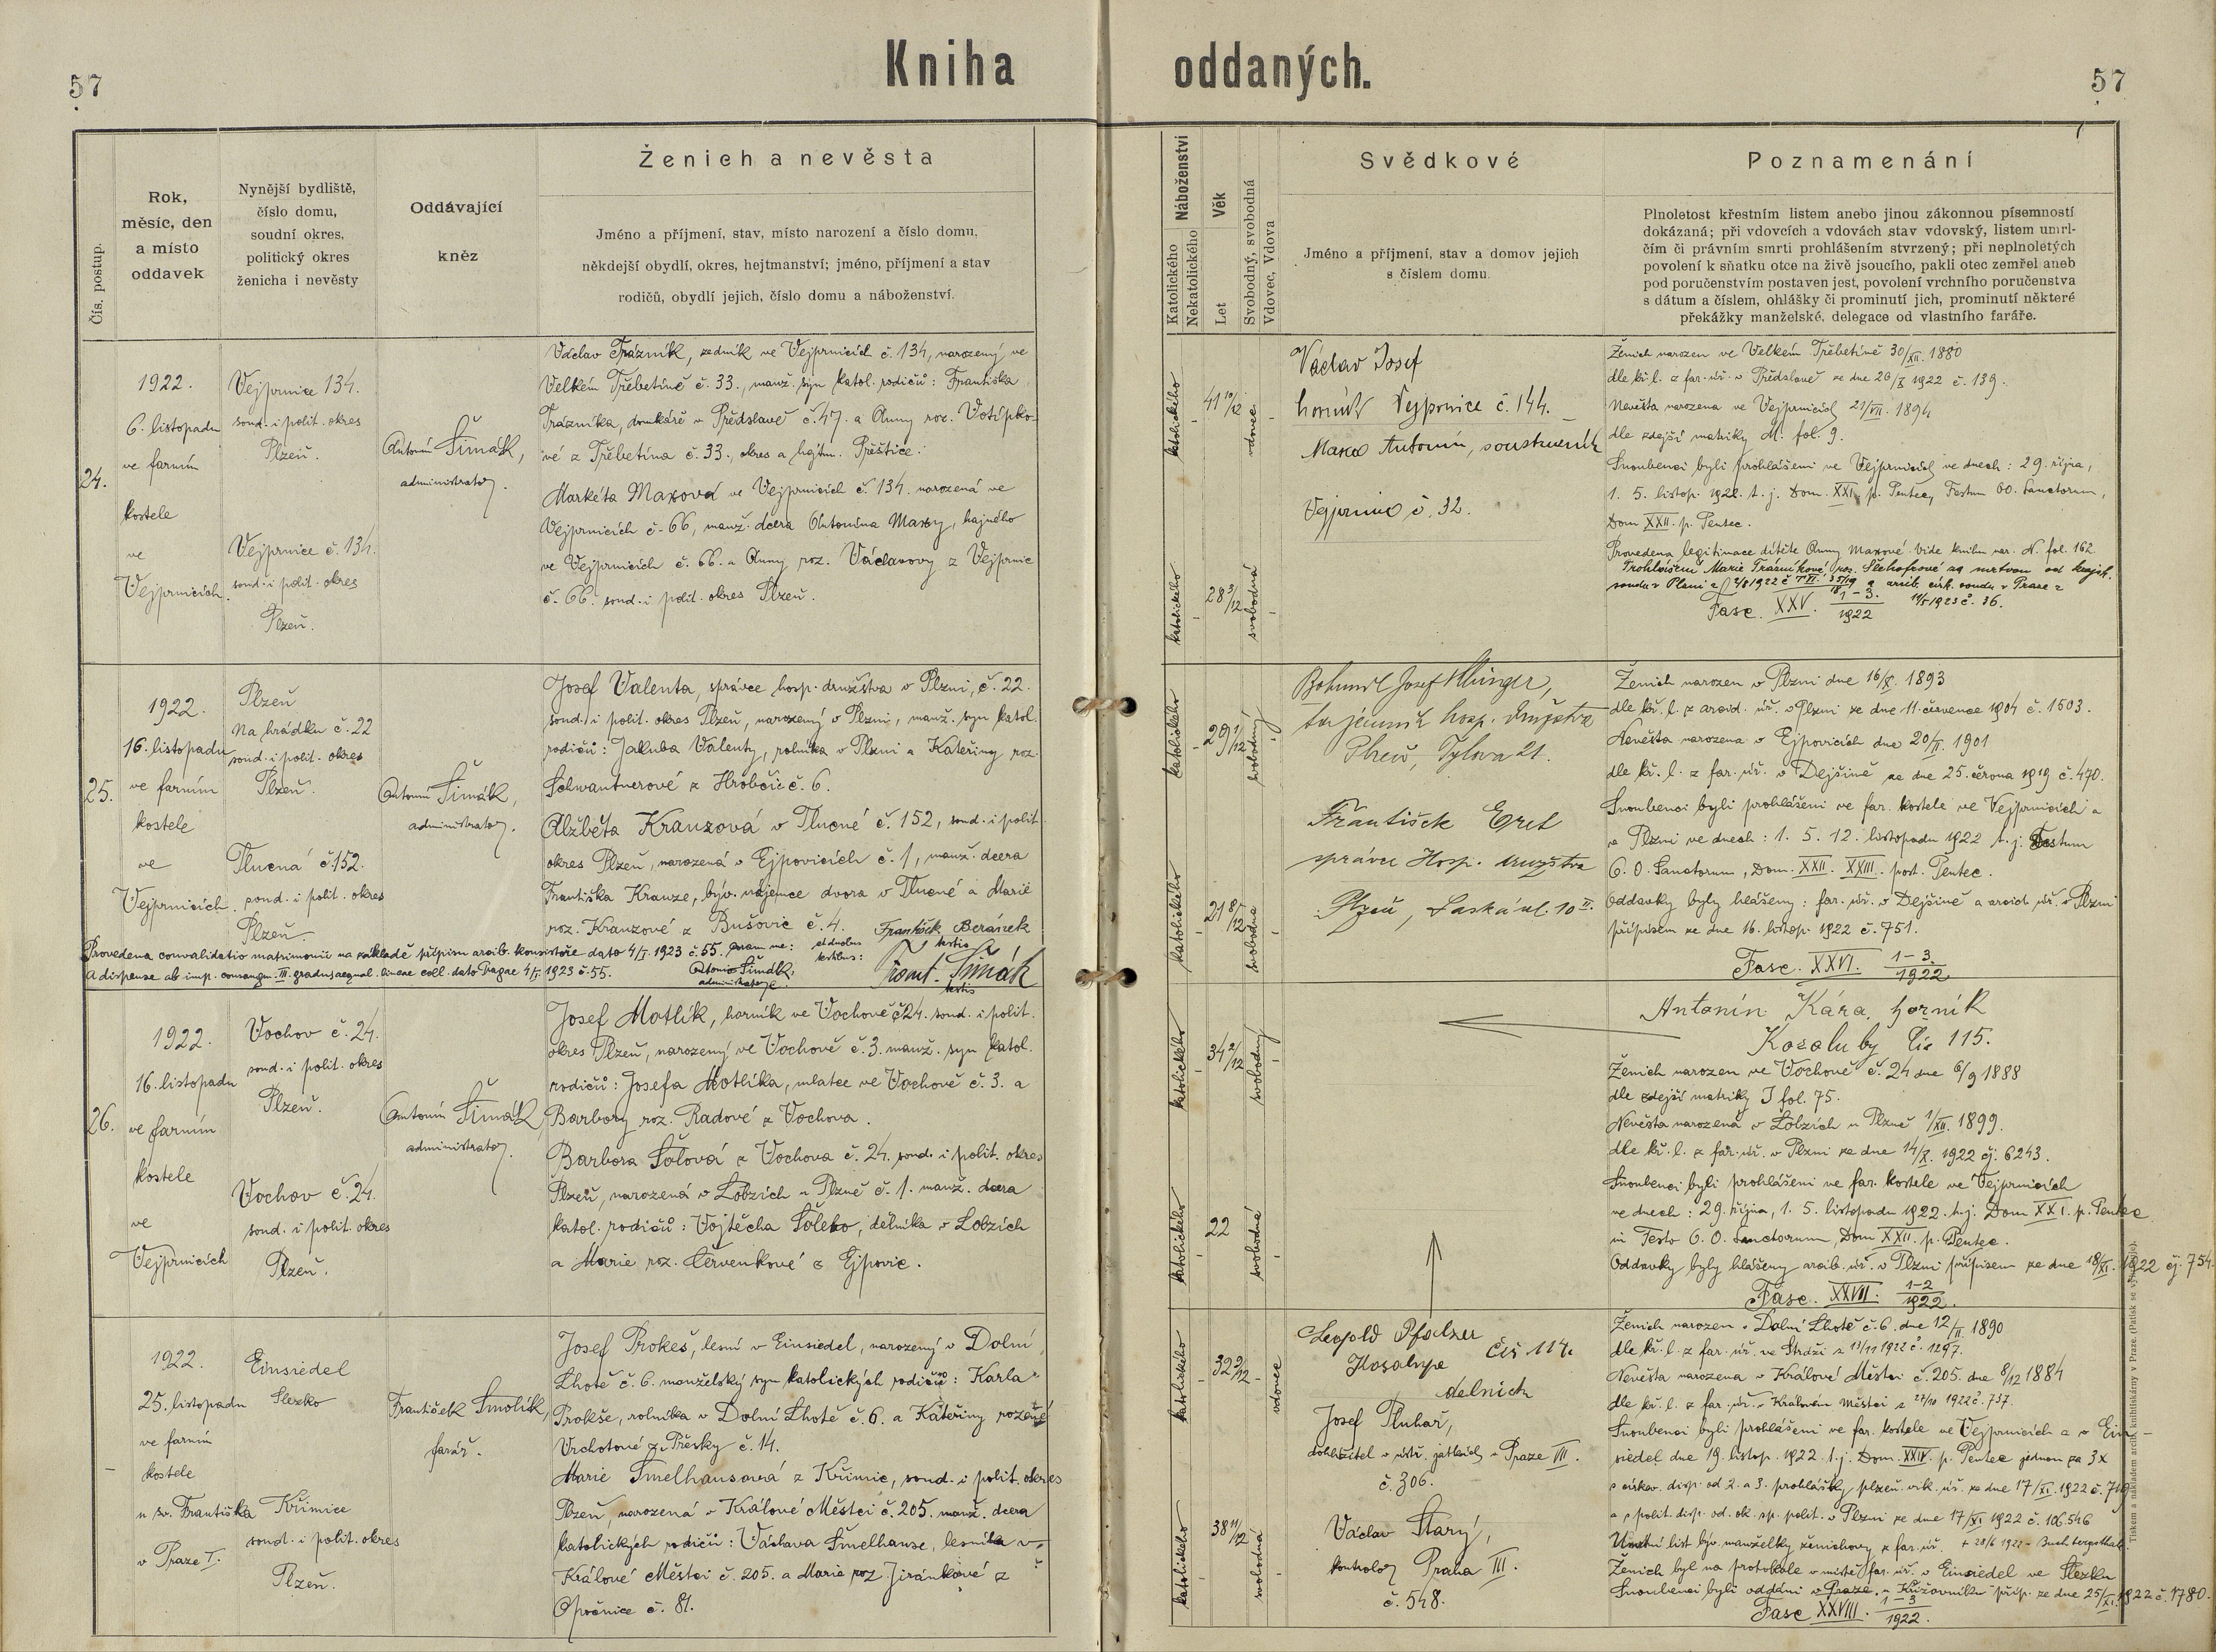 57
Kniha
oddaných.
57
Čís. postup.
Rok,
měsíc, den
a místo
oddavek
Nynější bydliště,
číslo domu,
soudní okres,
politický okres
ženicha i nevěsty
Oddávající
kněz
Ženich a nevěsta
Jméno a příjmení, stav, místo narození a číslo domu,
někdejší obydlí, okres, hejtmanství; jméno, příjmení a stav
rodičů, obydlí jejich, číslo domu a náboženství.
Náboženství
Katolického
Nekatolického
Věk
Let
Svobodný, svobodná
Vdovec, Vdova
Svědkové
Jméno a příjmení, stav a domov jejich
s číslem domu.
Poznamenání
Plnoletost křestním listem anebo jinou zákonnou písemností
dokázaná; při vdovcích a vdovách stav vdovský, listem umrl-
čím či právním smrti prohlášením stvrzený; při neplnoletých
povolení k sňatku otce na živě jsoucího, pakli otec zemřel aneb
pod poručenstvím postaven jest, povolení vrchního poručenstva
s dátum a číslem, ohlášky či prominutí jich, prominutí některé
překážky manželské, delegace od vlastního faráře.
24.
1922.
6. listopadu
ve farním
kostele
ve
Vejprnicích.
Vejprnice 134.
soud. i polit. okres
Plzeň.
Vejprnice č. 134.
soud. i polit. okres
Plzeň.
Antonín Šimák,
administrator.
Václav Trázník, zedník ve Vejprnicích č. 134, narozený ve
Velkém Třebetíně č. 33., manž. syn katol. rodičů: Františka
Trázníka, domkáře v Předslavě č. 47. a Anny roz. Votípko-
vé z Třebetína č. 33., okres a hejtm. Přeštice.
Markéta Maxová ve Vejprnicích č. 134. narozená ve
Vejprnicích č. 66, manž. dcera Antonína Maxy, hajného
ve Vejprnicích č. 66. a Anny roz. Václavovy z Vejprnic
č. 66. soud. i polit. okres Plzeň.
katolického
41 10/12
vdovec
katolického
28 3/12
svobodná
Václav Josef
horník Vejprnice č. 144.
Maxa Antonín, soustružník
Vejprnice č. 32.
Ženich narozen ve Velkém Třebetíně 30/XII. 1880
dle kř. l. z far. úř. v Předslavě ze dne 26/X 1922 č. 139.
Nevěsta narozena ve Vejprnicích 21/VII. 1894
dle zdejší matriky M. fol. 9.
Snoubenci byli prohlášeni ve Vejprnicích ve dnech: 29. října,
1. 5. listop. 1922. t. j. Dom. XXI. p. Pentec, Festum OO. Sanctorum,
Dom XXII. p. Pentec.
Provedena legitimace dítěte Anny Maxové. Vide knihu nar. N. fol. 162.
Fasc. XXV. 1-3. 1922
25.
1922.
16. listopadu
ve farním
kostele
ve
Vejprnicích.
Plzeň
Na hrádku č. 22
soud. i polit. okres
Plzeň.
Tlucná č. 152.
soud. i polit. okres
Plzeň.
Antonín Šimák,
administrator.
Josef Valenta, správce hosp. družstva v Plzni, č. 22.
soud. i polit. okres Plzeň, narozený v Plzni, manž. syn katol.
rodičů: Jakuba Valenty, rolníka v Plzni a Kateriny roz.
Schwantnerové z Hrobčic č. 6.
Alžběta Kranzová v Tlucné č. 152, soud. i polit
okres Plzeň, narozená v Ejpovicích č. 1, manž. dcera
Františka Kranze, býv. nájemce dvora v Tlucné a Marie
roz. Kranzové z Bušovic č. 4. František Beránek
Provedena convalidatio matrimonii na základě přípisu arcib. konsistoře dato 4/I. 1923 č. 55. coram me: et duobus testibus: testis
a dispense ab imp. consangu. III. gradus aequal. lineae coll. dato Pragae 4/I. 1923 č. 55. Antonín Šimák, administrator. Frant. Šimák testis
katolického
29 1/12
svobodný
katolického
21 8/12
svobodná
Bohumil Josef Klinger,
tajemník hosp. družstva
Plzeň, Tylova 21.
František Eret
správce Hosp. družstva
Plzeň, Saská ul. 10 II.
Ženich narozen v Plzni dne 16/X. 1893
dle kř. l. z arcid. úř. v Plzni ze dne 11. července 1904 č. 1503.
Nevěsta narozena v Ejpovicích dne 20/II. 1901
dle kř. l. z far. úř. v Dejšině ze dne 25. června 1919 č. 470.
Snoubenci byli prohlášeni ve far. kostele ve Vejprnicích a
v Plzni ve dnech: 1. 5. 12. listopadu 1922 t. j. Festum
O. O. Sanctorum, Dom. XXII. XXIII. post. Pentec.
Oddavky byly hlášeny: far. úř. v Dejšině a arcid. úř. v Plzni
přípisem ze dne 16. listop. 1922 č. 751.
Fasc. XXVI. 1-3. 1922
26.
1922.
16. listopadu
ve farním
kostele
ve
Vejprnicích
Vochov č. 24.
soud. i polit. okres
Plzeň.
Vochov č. 24.
soud. i polit. okres
Plzeň.
Antonín Šimák,
administrator.
Josef Motlík, horník ve Vochově č. 24. soud. i polit.
okres Plzeň, narozený ve Vochově č. 3. manž. syn katol.
rodičů: Josefa Motlíka, mlatce ve Vochově č. 3. a
Barbory roz. Radové z Vochova.
Barbora Šólová z Vochova č. 24. soud. i polit. okres
Plzeň, narozená v Lobzích u Plzně č. 1. manž. dcera
katol. rodičů: Vojtěcha, dělníka v Lobzích
a Marie roz. Červenkové z Ejpovic.
katolického
34 2/12
svobodný
katolického
22
svobodná
Antonín Kára, horník
Kozoluby čís 115.
Ženich narozen ve Vochově č. 24 dne 6/9 1888
dle zdejší matriky J fol. 75.
Nevěsta narozena v Lobzích u Plzně 1/XII. 1899.
dle kř. l. z far. úř. v Plzni ze dne 14/X. 1922 čj. 6243.
Snoubenci byli prohlášeni ve far. kostele ve Vejprnicích
ve dnech: 29. října, 1. 5. listopadu 1922. t. j. Dom XXI. p. Pentec
in Festo O. O. Sanctorum, Dom XXII. p. Pentec.
Oddavky byly hlášeny arcib. úř. v Plzni přípisem ze dne 18/XI. 1922 čj. 754.
Fasc. XXVII. 1-2 1922.
1922.
25. listopadu
ve farním
kostele
u sv. Františka
v Praze I.
Einsiedel
Slezsko
Křimice
soud. i polit. okres
Plzeň.
František Smolík,
farář.
Josef Prokeš, lesní v Einsiedel, narozený v Dolní
Lhotě č. 6. manželský syn katolických rodičů: Karla
Prokše, rolníka v Dolní Lhotě č. 6. a Kateřiny rozené
Vrchotové z Přesky č. 14.
Marie Šmelhausová z Křimic, soud. i polit. okres
Plzeň, narozená v Králové Městci č. 205. manž. dcera
katolických rodičů: Václava Šmelhause, lesníka v
Králové Městci č. 205. a Marie roz. Jiránkové z
Opočnice č. 81.
katolického
32 9/12
vdovec
katolického
38 11/12
svobodná
Leopold Pfalzer
čís 114.
delník
Josef Pluhař,
dohlížitel v ústř. jatkách v Praze VII.
č. 306.
Václav Starý,
kontrolor Praha III.
č. 548.
Ženich narozen v Dolní Lhotě č. 6. dne 12/II. 1890
dle kř. l. z far. úř. ve Strdži z 13/11 1922 č. 1297.
Nevěsta narozena v Králové Městci č. 205. dne 8/12 1884
dle kř. l. z far. úř. v Králové Městci z 27/10 1922 č. 737.
Snoubenci byli prohlášeni ve far. kostele ve Vejprnicích a v Ein-
siedel dne 19. listop. 1922. t. j. Dom. XXIV. p. Pentec jednou za 3x
s církev. disp. od 2. a 3. prohlášky plzeň. vik. úř. ze dne 17/XI. 1922
a s polit. disp. od. ok. sp. polit. v Plzni ze dne 17/XI 1922 č. 106.546
Úmrtní list býv. manželky ženichovy z far. úř.
Ženich byl na protokole v místě far. úř. v Einsiedel ve Slezku
Snoubenci byli oddáni v Praze u Křižovníků příp. ze dne 25/XI. 1922 č. 1780.
Fasc XXVIII. 1-3 1922.